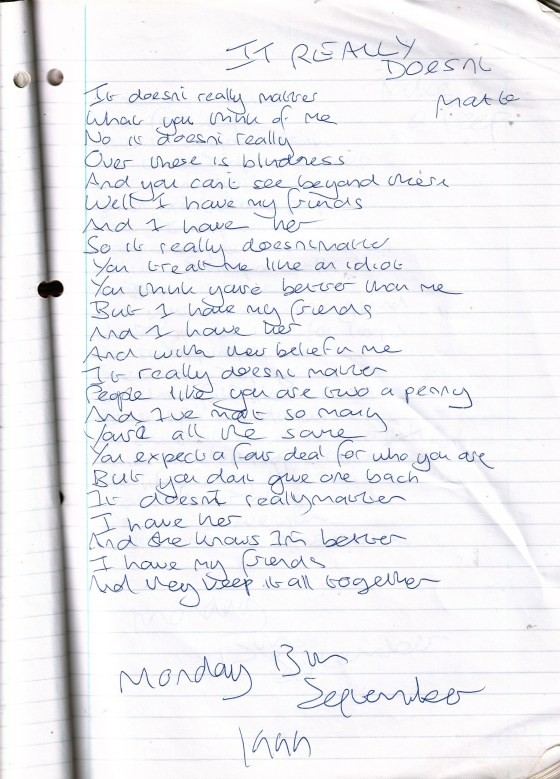 IT REALLY
DOESNt
Matte
It doesnt really matter
What you think of me
No it doesnt really
Over these is blindness
And you cant see beyond there
Well I have my friends
And I have her
So it really doesnt matter
You treat me like an idiot
You think youre better than me
But I have my friends
And I have her
And with her belief in me
It really doesnt matter
People like you are two a penny
And I've met so many
You're all the same
You expect a fair deal for who you are
But you dont give one back
It doesnt really matter
I have her
And she knows Im better
I have my friends
And they keep it all together
Monday 13th
September
1999